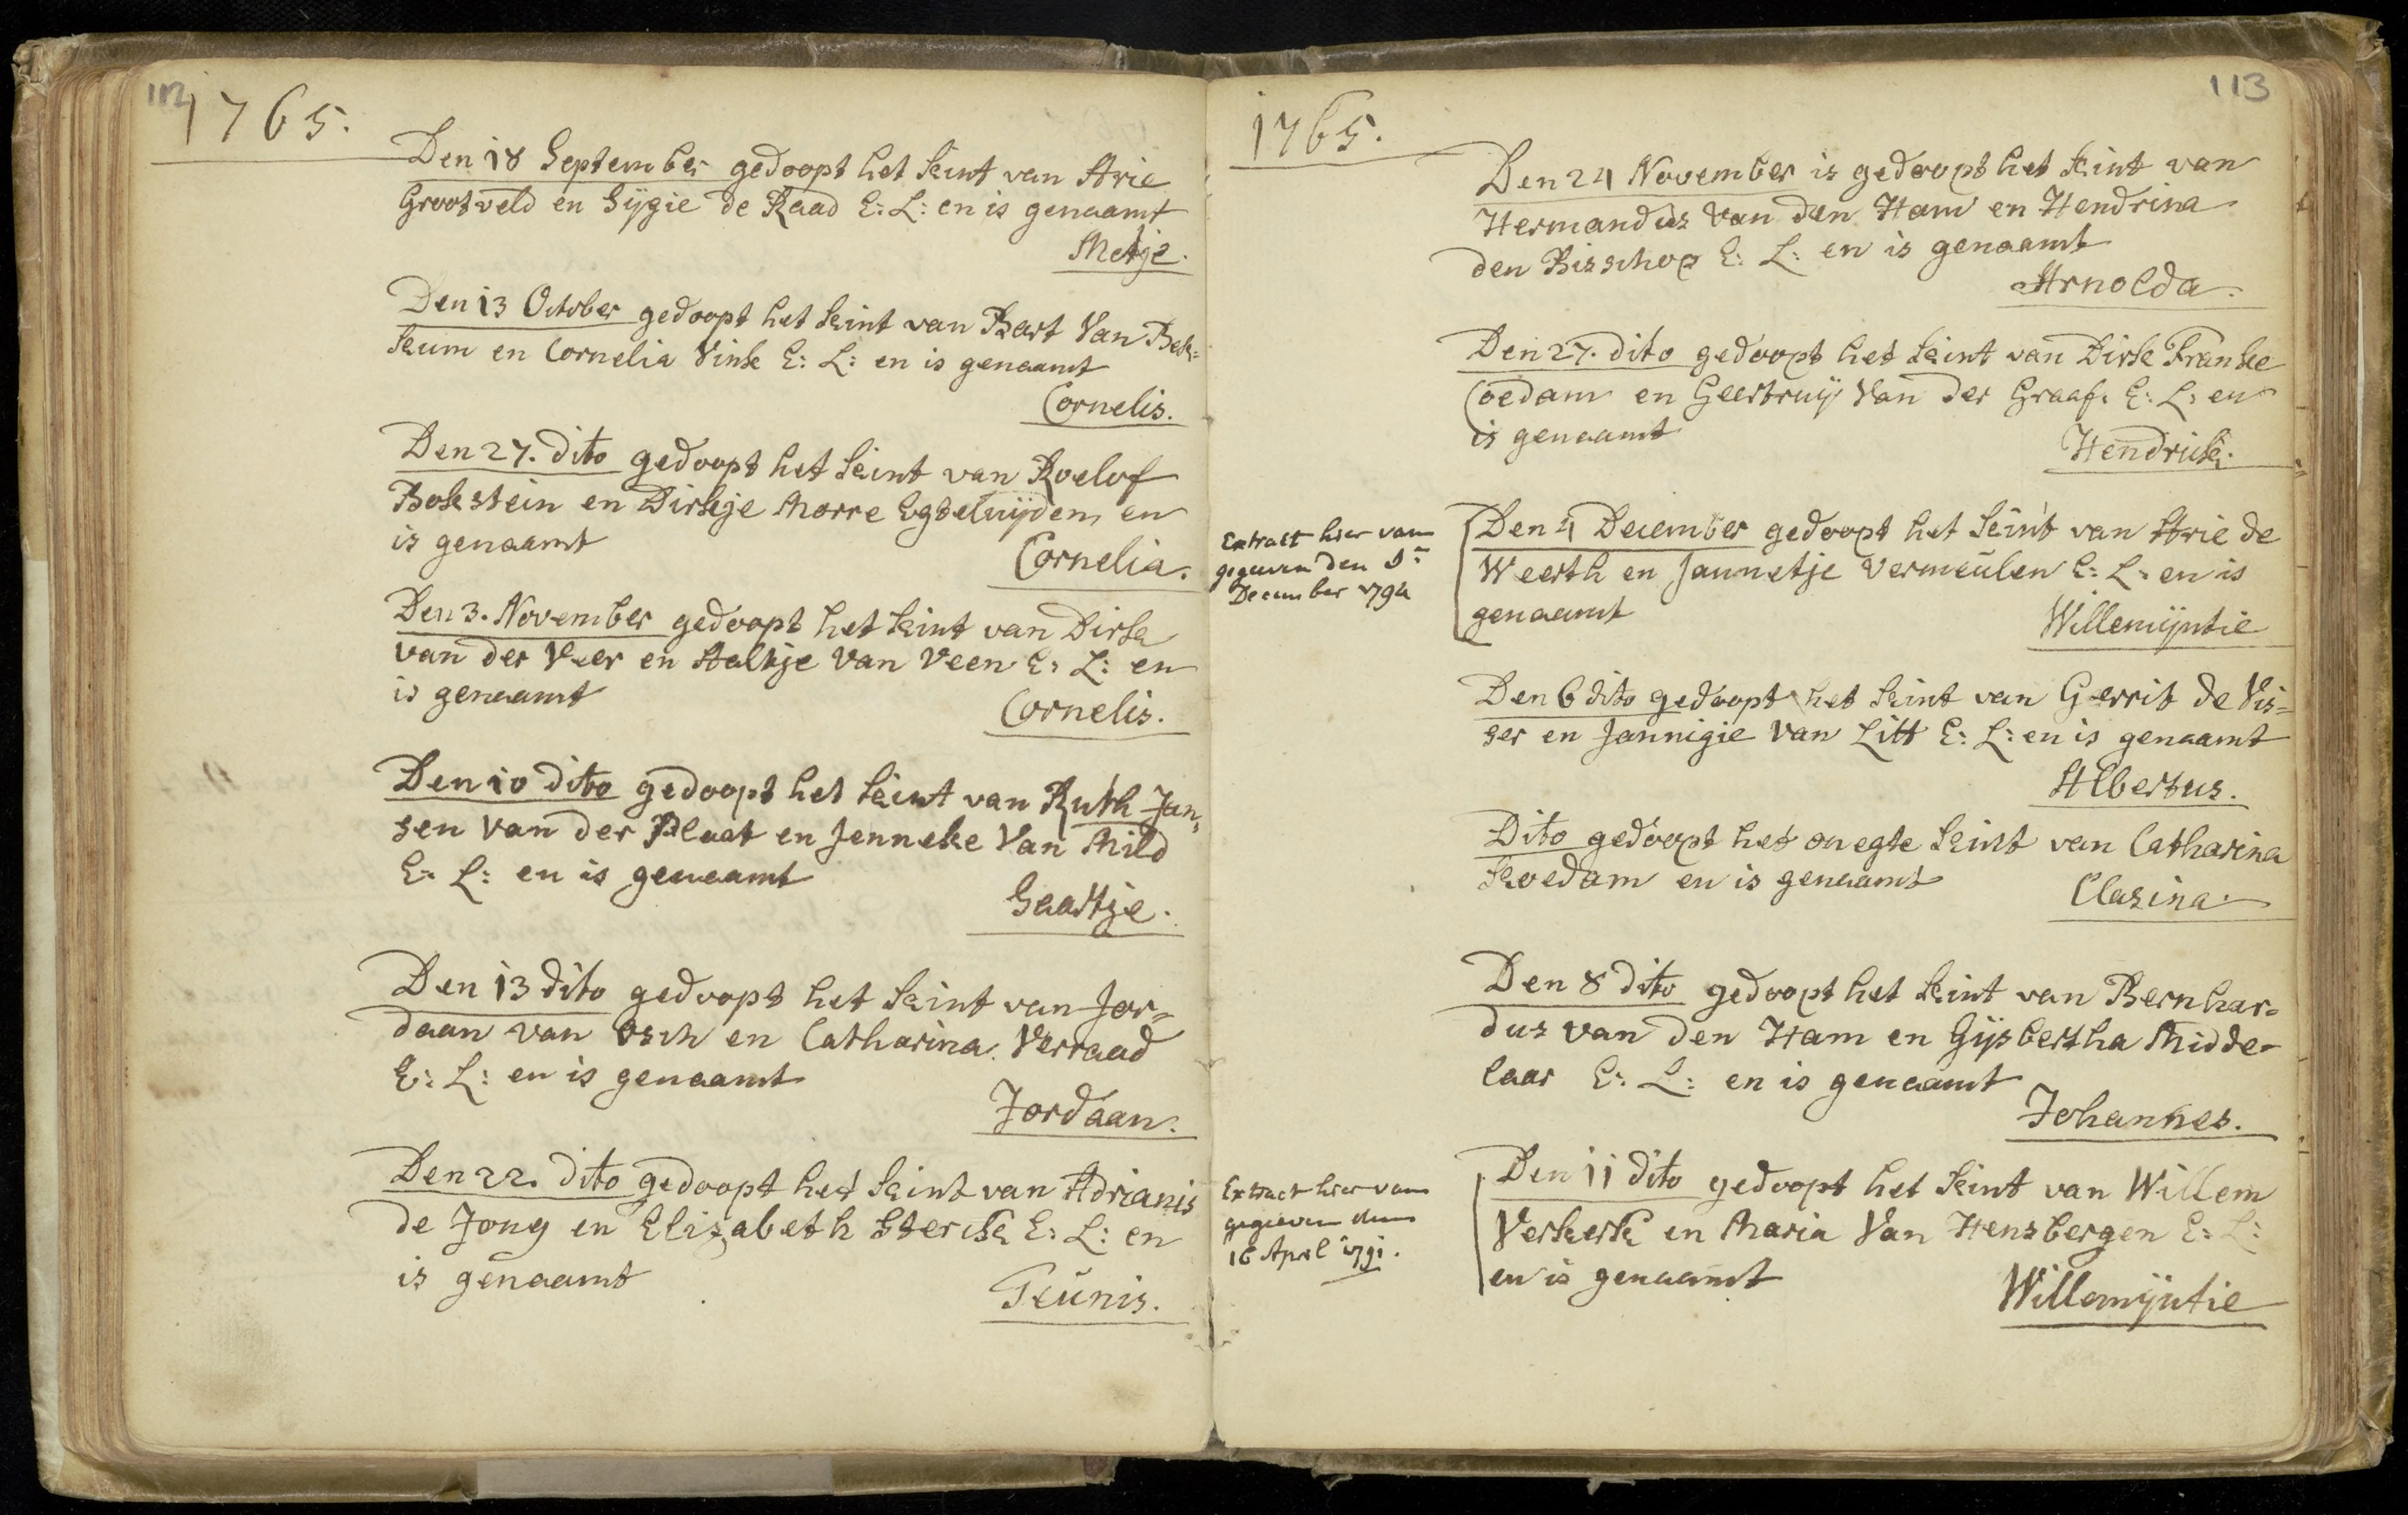 112
1765.
Den 18 September gedoopt het kint van Arie
Grootveld en Sijgie de Raad E: L: en is genaamt
Metje.
Den 13 October gedoopt het kint van Bart Van Bek=
kum en Cornelia Vink E: L: en is genaamt
Cornelis.
Den 27. dito gedoopt het kint van Roelof
Bokstein en Dirkje Morre Egteluijden, en
is genaamt
Cornelia.
Den 3. November gedoopt het kint van Dirk
van der Veer en Aaltje Van Veen E: L: en
is genaamt
Cornelis.
Den 10 dito gedoopt het kint van Ruth Jan=
sen Van der Plaat en Jenneke Van Mild
E: L: en is genaamt
Gaartje.
Den 13 dito gedoopt het kint van Jor=
daan van Osch en Catharina Verraad
E: L: en is genaamt
Jordaan.
Den 22. dito gedoopt het kint van Adrianis
de Jong en Elizabeth Sterck E: L: en
is genaamt
Teunis.
113
1765.
Den 24 November is gedoopt het kint van
Hermandus Van den Ham en Hendrina
den Bisschop E: L: en is genaamt
Arnolda.
Den 27. dito gedoopt het kint van Dirk Franke
Coedam en Geertruij Van der Graaf. E: L: en
is genaamt
Hendrick.
Extract hier van
gegeven den
December 1794
Den 4 December gedoopt het kint van Arie de
Weerth en Jannetje Vermeulen E: L: en is
genaamt
Willemijntie
Den 6 dito gedoopt het kint van Gerrit de Vis=
ser en Jannigie Van Litt E: L: en is genaamt
Albertus.
Dito gedoopt het onegte kint van Catharina
Koedam en is genaamt
Clasina.
Den 8 dito gedoopt het kint van Bernhar=
dus van den Ham en Gijsbertha Midde=
laar E: L: en is genaamt
Johannes.
Extract hier van
gegeven den
16 April 1791.
Den 11 dito gedoopt het kint van Willem
Verkerk en Maria Van Hensbergen E: L:
en is genaamt
Willemijntie